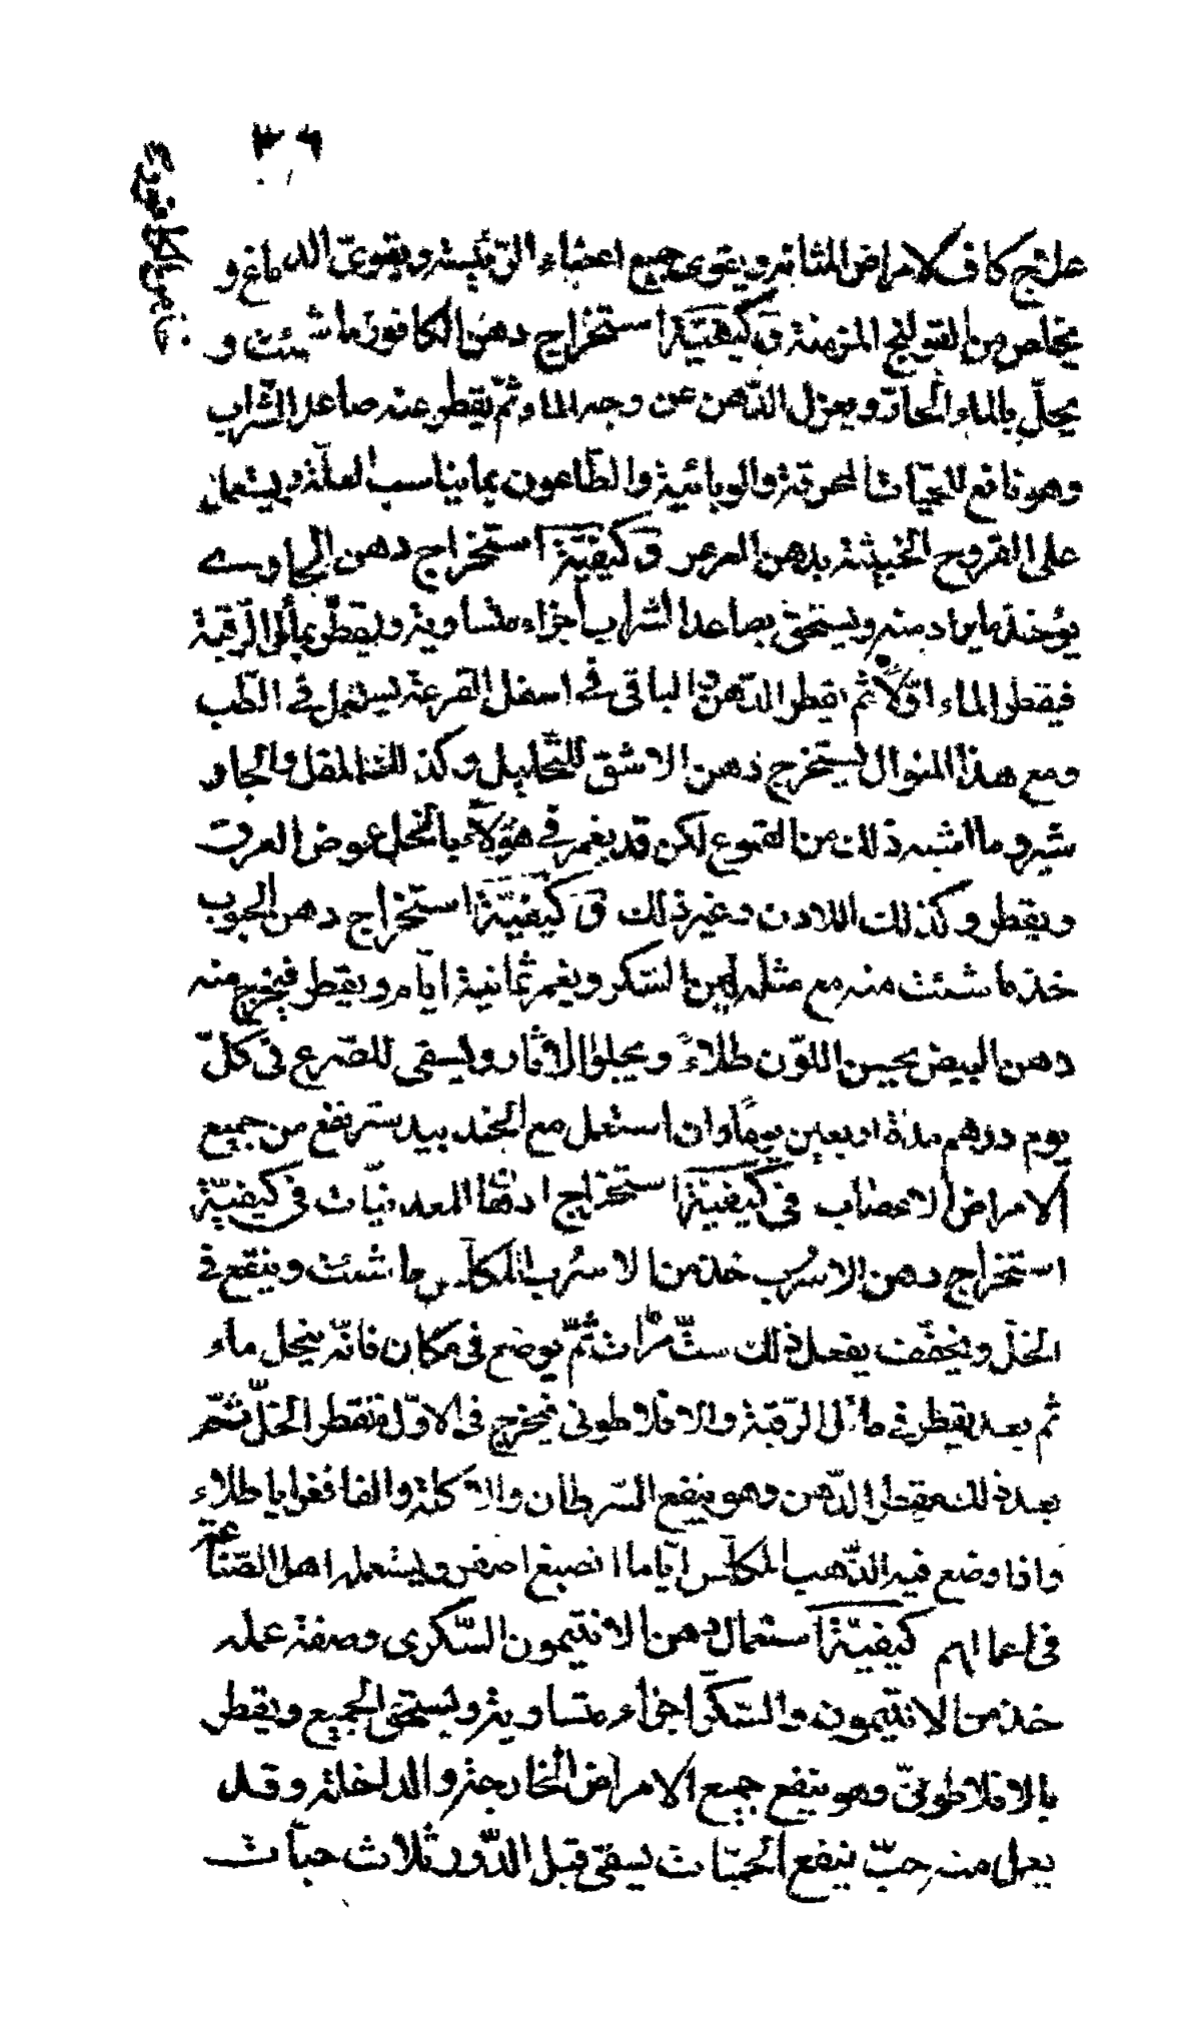 ٣٦
علاج كاف لامراض المثانة ويقوى جميع اعضاء الرّئيسة ويقوىّ الدماغ و
يخلص من القولنج المزمنة فى كيفيّة استخراج دهن الكافور ما شئت و
يحلّ بالماء الحارّ ويعزل الدّهن عن وجه الماء ثمّ يقطر عنه صاعد الشّراب
وهو نافع للحميّات المحرقة والوبائية والطّاعون بما يناسب العلّة ويستعمل
على القروح الخبيثة بدهن العرعر فى كيفيّة استخراج دهن الجاوسے
يؤخذ ما يراد منه ويستحق بصاعد الشراب اجزاء متساوية ويقطّر بمائل الرّقبة
فيقطر الماء اوّلاً ثم يقطر الدّهن والباقى فے اسفل القرعة يستعمل فے الطّب
ومع هذا المنوال يستخرج دهن الاشق للتّحليل وكذلك المقل والجاو
شير وما اشبه ذلك من الصموغ لكن قد يغمر فے هؤلآء بالخل عوض العرق
ويقطر وكذلك اللادن وغير ذلك فى كيفيّة استخراج دهن الحبوب
خذ ما شئت منه مع مثله من السّكر ويغمر ثمانية ايّام ويقطر فيخرج منه
دهن البيض يحسن اللوّن طلاءً ويجلوا الاثار ويسقى للصّرع فى كلّ
يوم درهم مدّة اربعين يوماً وان استعمل مع الجندبيدستر نفع من جميع
الامراض الاعصاب فى كيفيّة استخراج ادهان المعدنيّات فى كيفيّة
استخراج دهن الاسرُب خذ من الاسرُب المكلّس ما شئت وينقع فے
الخلّ ويخفّف يفعل ذلك ستّ مرّات ثمّ يوضع فى مكان فانّه ينحل ماء
ثم بعد يقطر فے مائل الرّقبة والافلاطونى فيخرج فى الاوّل فتقطر الخلّ ثمّ
بعد ذلك يقطر الدّهن وهو ينفع السّرطان والاكلة والغانغرايا طلاء
واذا وضع فيه الذّهب المكلّس ايّاما انصبغ اصفر ويستعمله اهل الصّناعة
فى اعمالهم كيفيّة استعمال دهن الانتيمون السّكرى وصفة عمله
خذ من الانتيمون والسّكر اجزاء متساوية ويستحق الجميع ويقطر
بالافلاطونىّ وهو ينفع جميع الامراض الخارجة والداخلة وقد
يعمل منه حبّ ينفع الحميّات يسقى قبل الدّور ثلاث حبّات